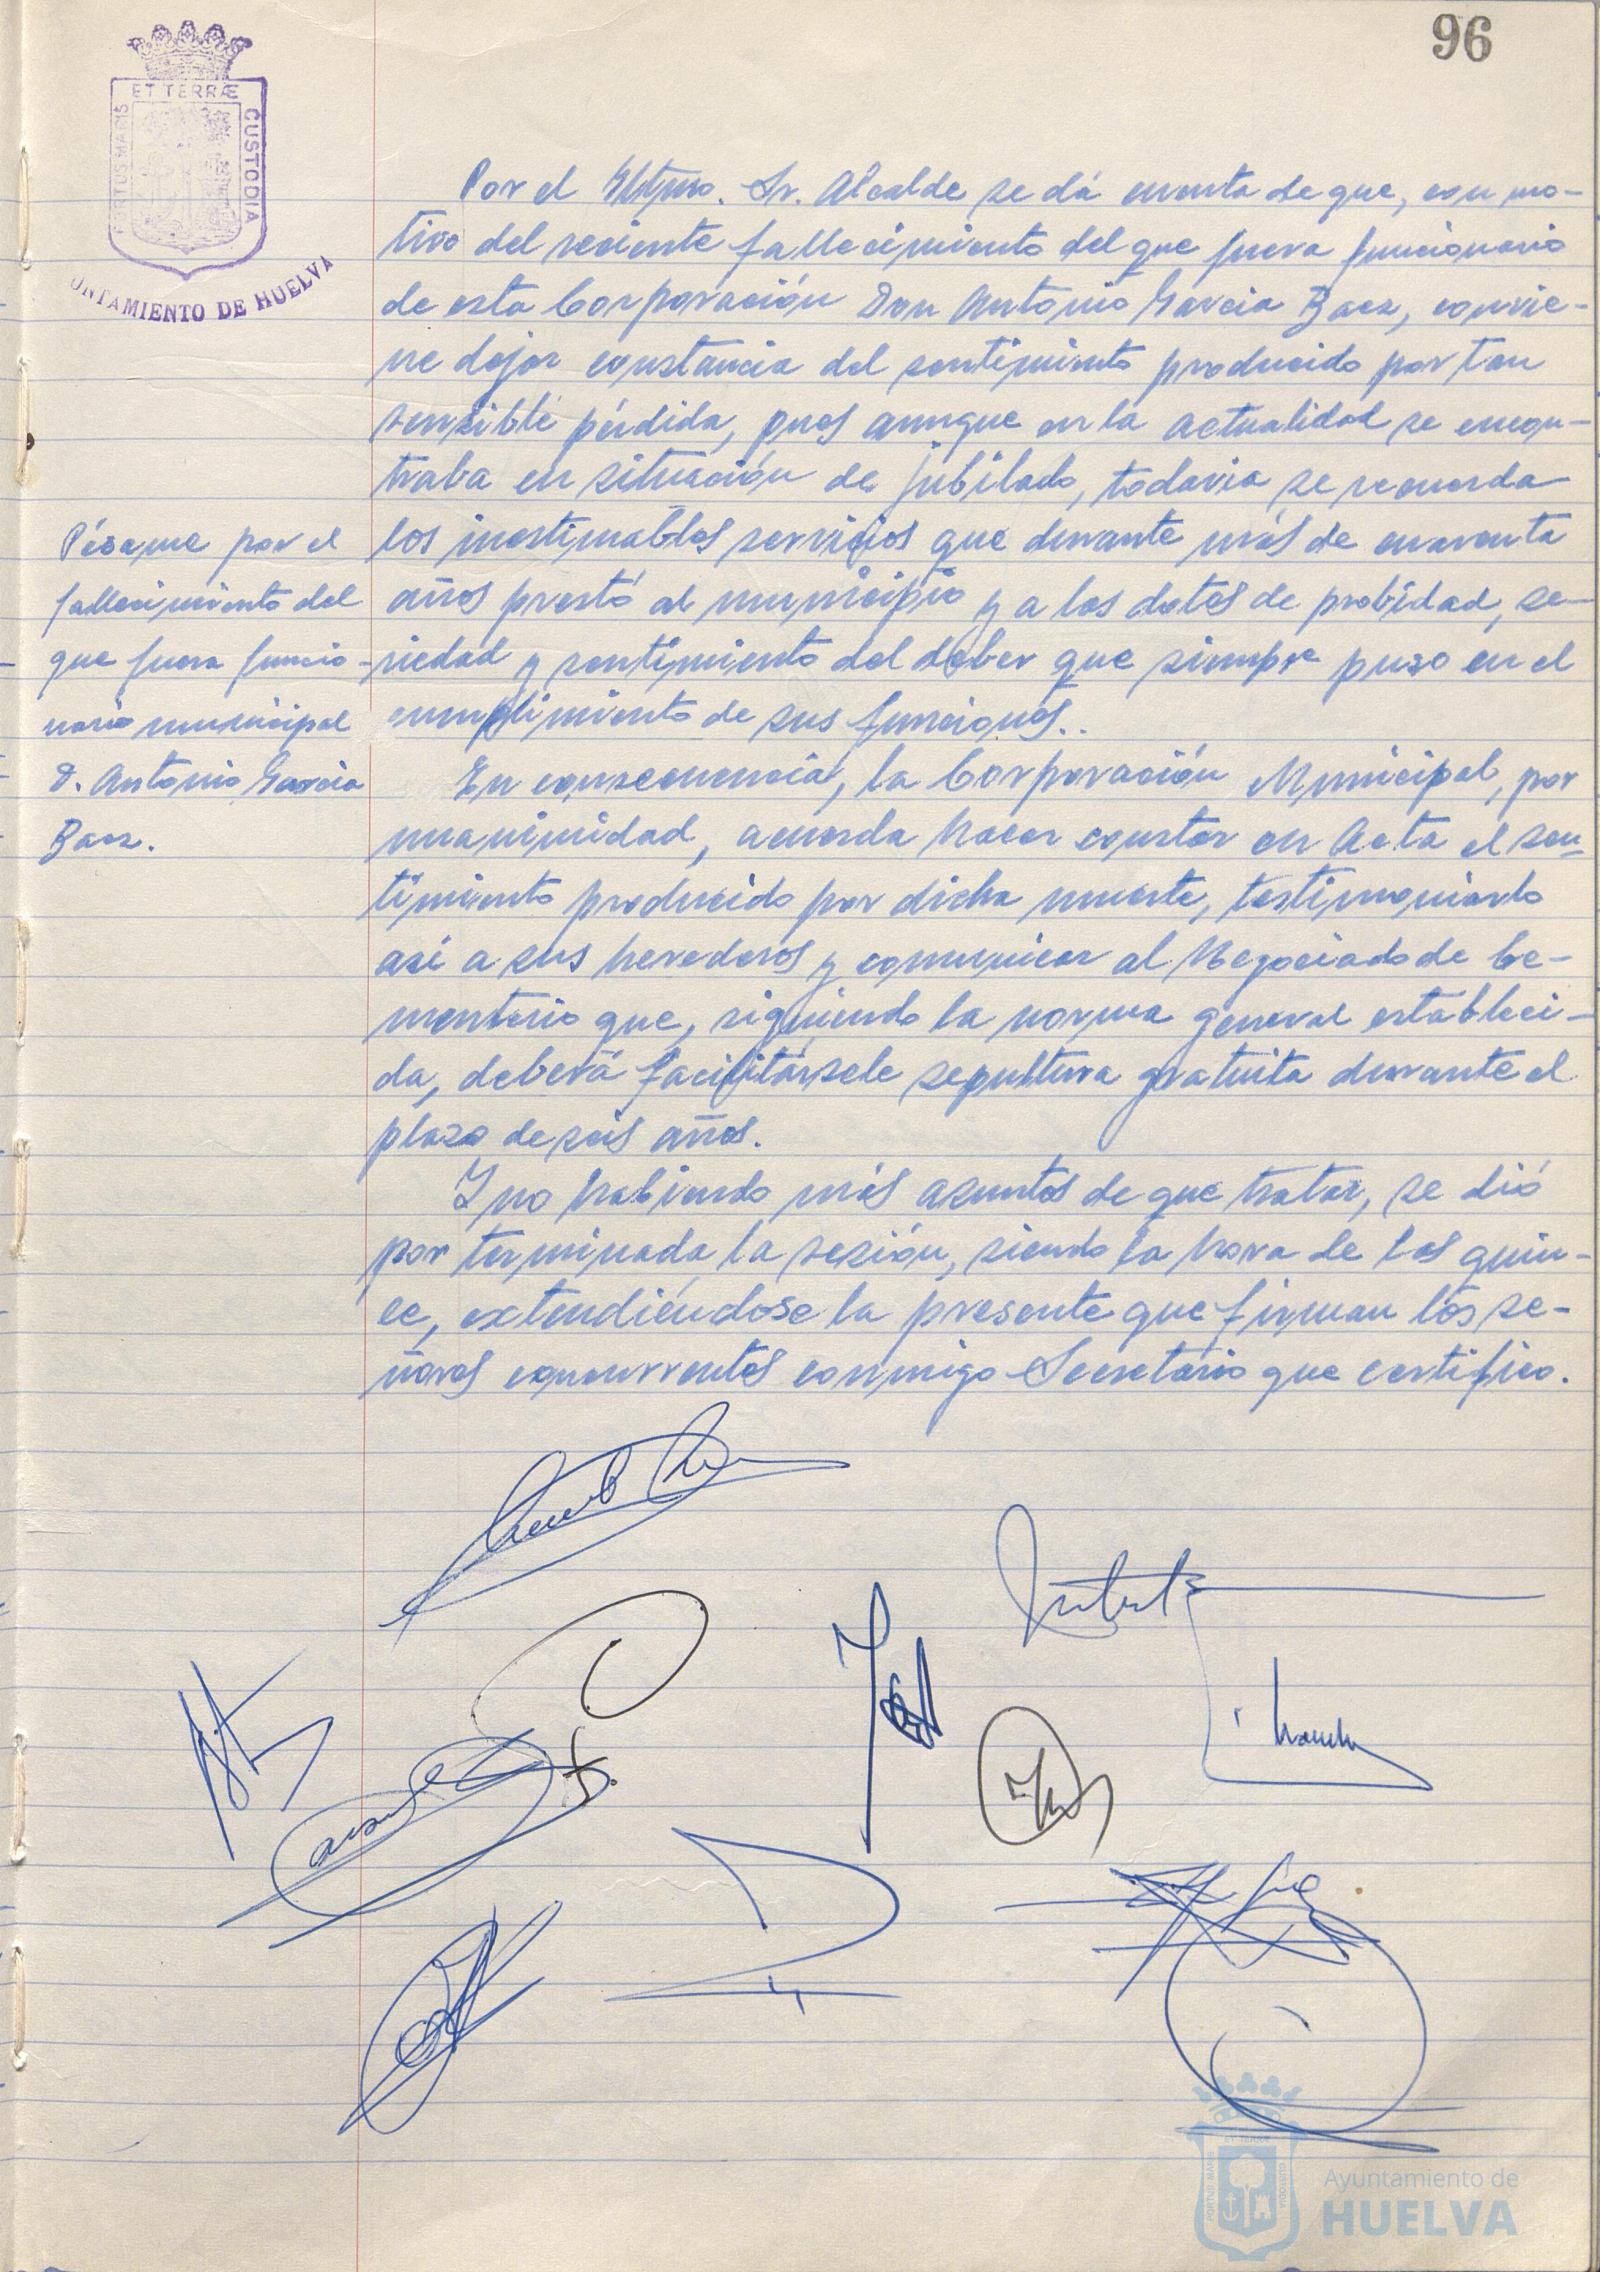 96
ET TERRÆ
PORTUS MARIS
CUSTODIA
UNTAMIENTO DE HUELVA
Por el Iltmo. Sr. Alcalde se dá cuenta de que, con mo-
tivo del reciente fallecimiento del que fuera funcionario
de esta Corporación Don Antonio Garcia Baez, convie-
ne dejar constancia del sentimiento producido por tan
sensible pérdida, pues aunque en la actualidad se encon-
traba en situación de jubilado, todavia se recuerda
los inestimables servicios que durante más de cuarenta
años prestó al municipio y a las dotes de probidad, se-
riedad y sentimiento del deber que siempre puso en el
cumplimiento de sus funciones..
Pésame por el
fallecimiento del
que fuera funcio-
nario municipal
D. Antonio Garcia
Baez.
En consecuencia, la Corporación Municipal, por
unanimidad, acuerda hacer constar en Acta el sen-
timiento producido por dicha muerte, testimoniarlo
asi a sus herederos y comunicar al Negociado de Ce-
menterio que, siguiendo la norma general estableci-
da, deberá facilitársele sepultura gratuita durante el
plazo de seis años.
Y no habiendo más asuntos de que tratar, se dió
por terminada la sesión, siendo la hora de las quin-
ce, extendiéndose la presente que firman los se-
ñores concurrentes conmigo Secretario que certifico.
ET TERRÆ
PORTUS MARIS
CUSTODIA
Ayuntamiento de
HUELVA